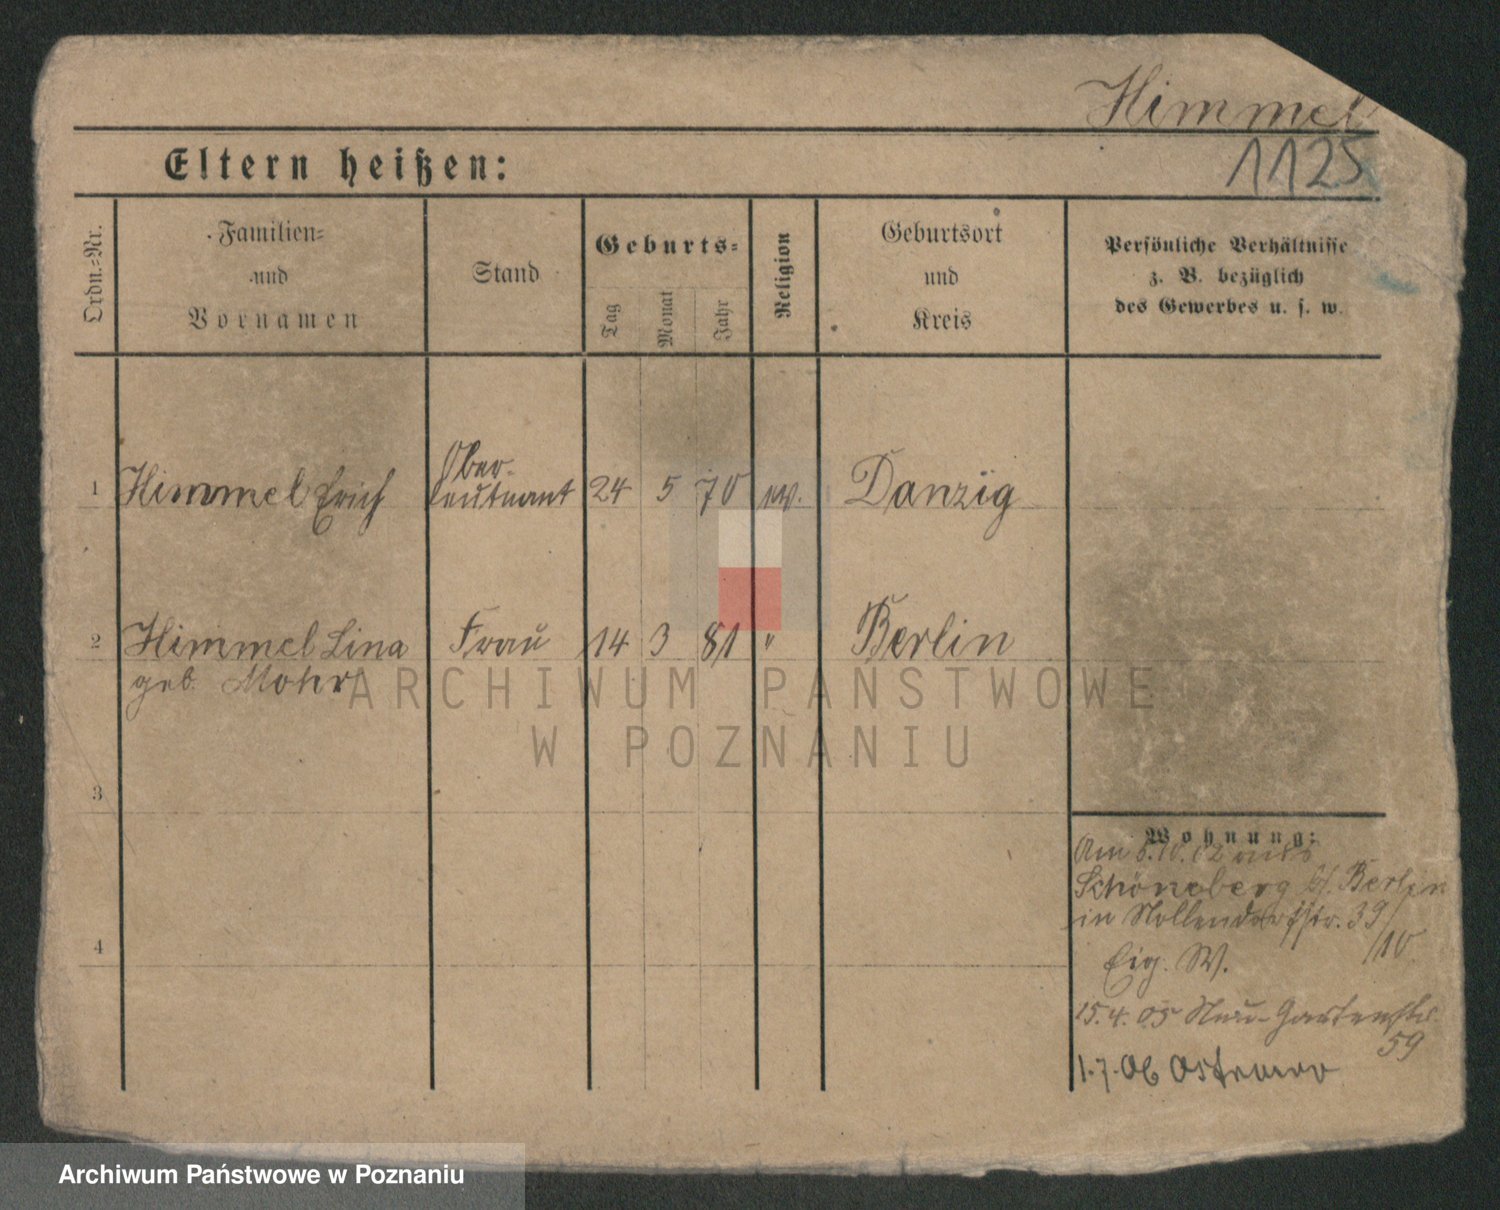 Himmel
1125
Eltern heißen:
Ordn.-Nr.
Familien-
und
Vornamen
Stand
Geburts-
Tag
Monat
Jahr
Religion
Geburtsort
und
Kreis
Persönliche Verhältnisse
z. B. bezüglich
des Gewerbes u. s. w.
Ober-
1 Himmel Erich leutnant 24 5 70 ev. Danzig
2 Himmel Lina Frau 14 3 81 " Berlin
geb. Mohr
ARCHIWUM PAŃSTWOWE
W POZNANIU
3
Wohnung:
Am 5.10.02 aus
Schöneberg b/. Berlin
in Nollendorfstr. 39/
4
/10
Eig. W.
15.4.05 Neue Gartenstr.
59
1.7.06
Archiwum Państwowe w Poznaniu